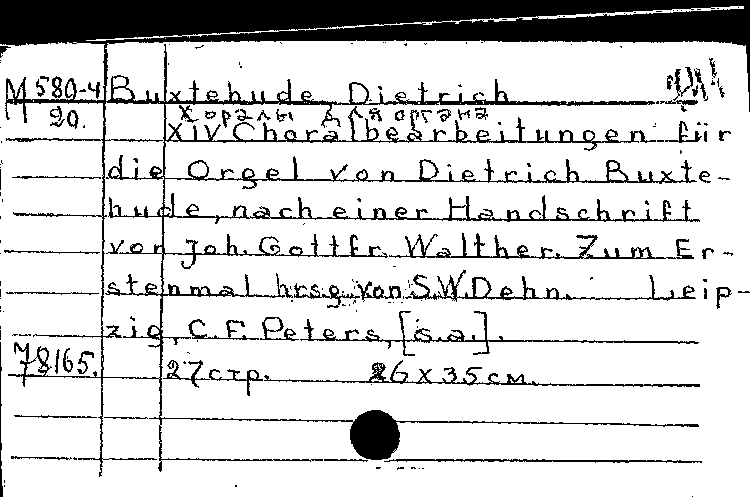 М 580-4 Buxtehude, Dietrich
20. Хоралы для органа
XIV. Choralbearbeitungen für
die Orgel von Dietrich Buxte-
hude, nach einer Handschrift
von Joh. Gottfr. Walther. Zum Er-
stenmal hrsg. von S.W. Dehn. Leip-
zig, C.F. Peters, [s.a.].
78165. 27 стр. 26 x 35 см.